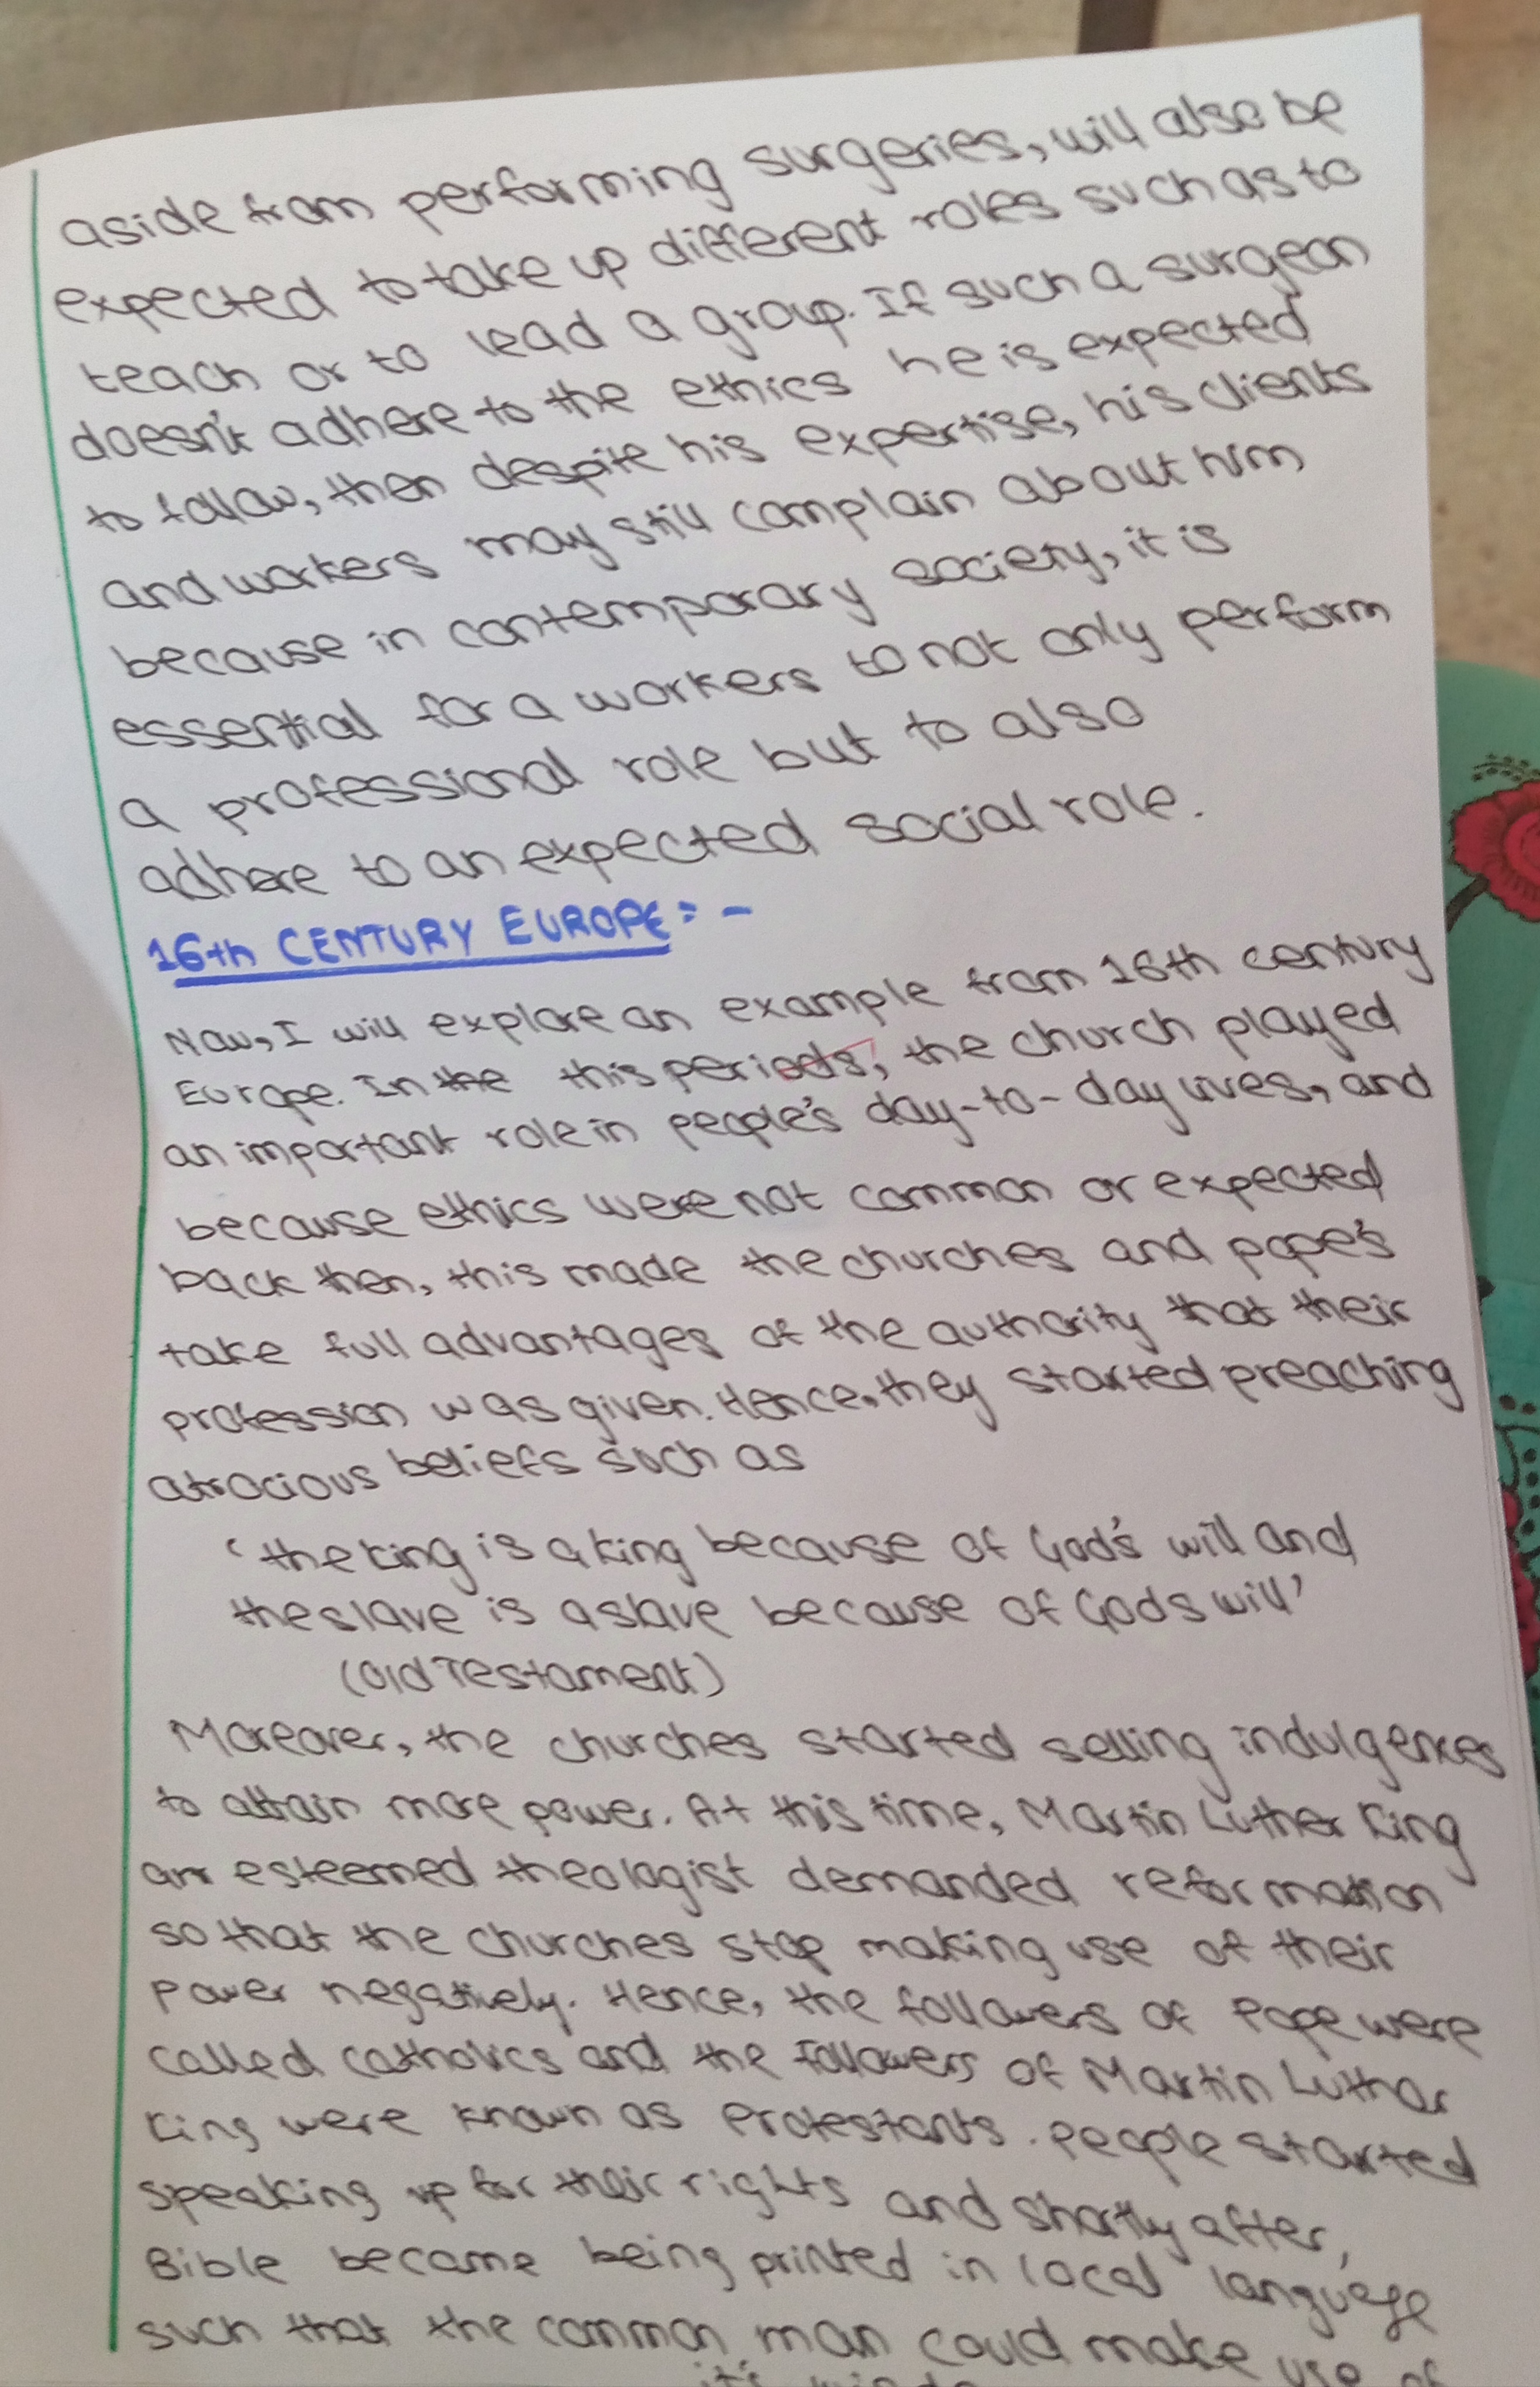 aside from performing surgeries, will also be
expected to take up different roles such as to
teach or to lead a group. If such a surgeon
doesn't adhere to the ethics he is expected
to follow, then despite his expertise, his clients
and workers may still complain about him
because in contemporary society, it is
essential for a workers to not only perform
a professional role but to also
adhere to an expected social role.
16th CENTURY EUROPE: -
Now, I will explore an example from 16th century
Europe. In the this periods, the church played
an important role in people's day-to-day lives, and
because ethics were not common or expected
back then, this made the churches and pope's
take full advantages of the authority that their
profession was given. Hence, they started preaching
atrocious beliefs such as
'the king is a king because of God's will and
the slave is a slave because of Gods will'
(Old Testament)
Moreover, the churches started selling indulgences
to attain more power. At this time, Martin Luther King
an esteemed theologist demanded reformation
so that the churches stop making use of their
power negatively. Hence, the followers of Pope were
called catholics and the followers of Martin Luther
King were known as Protestants. People started
speaking up for their rights and shortly after,
Bible became being printed in local language
such that the common man could make use of
it's